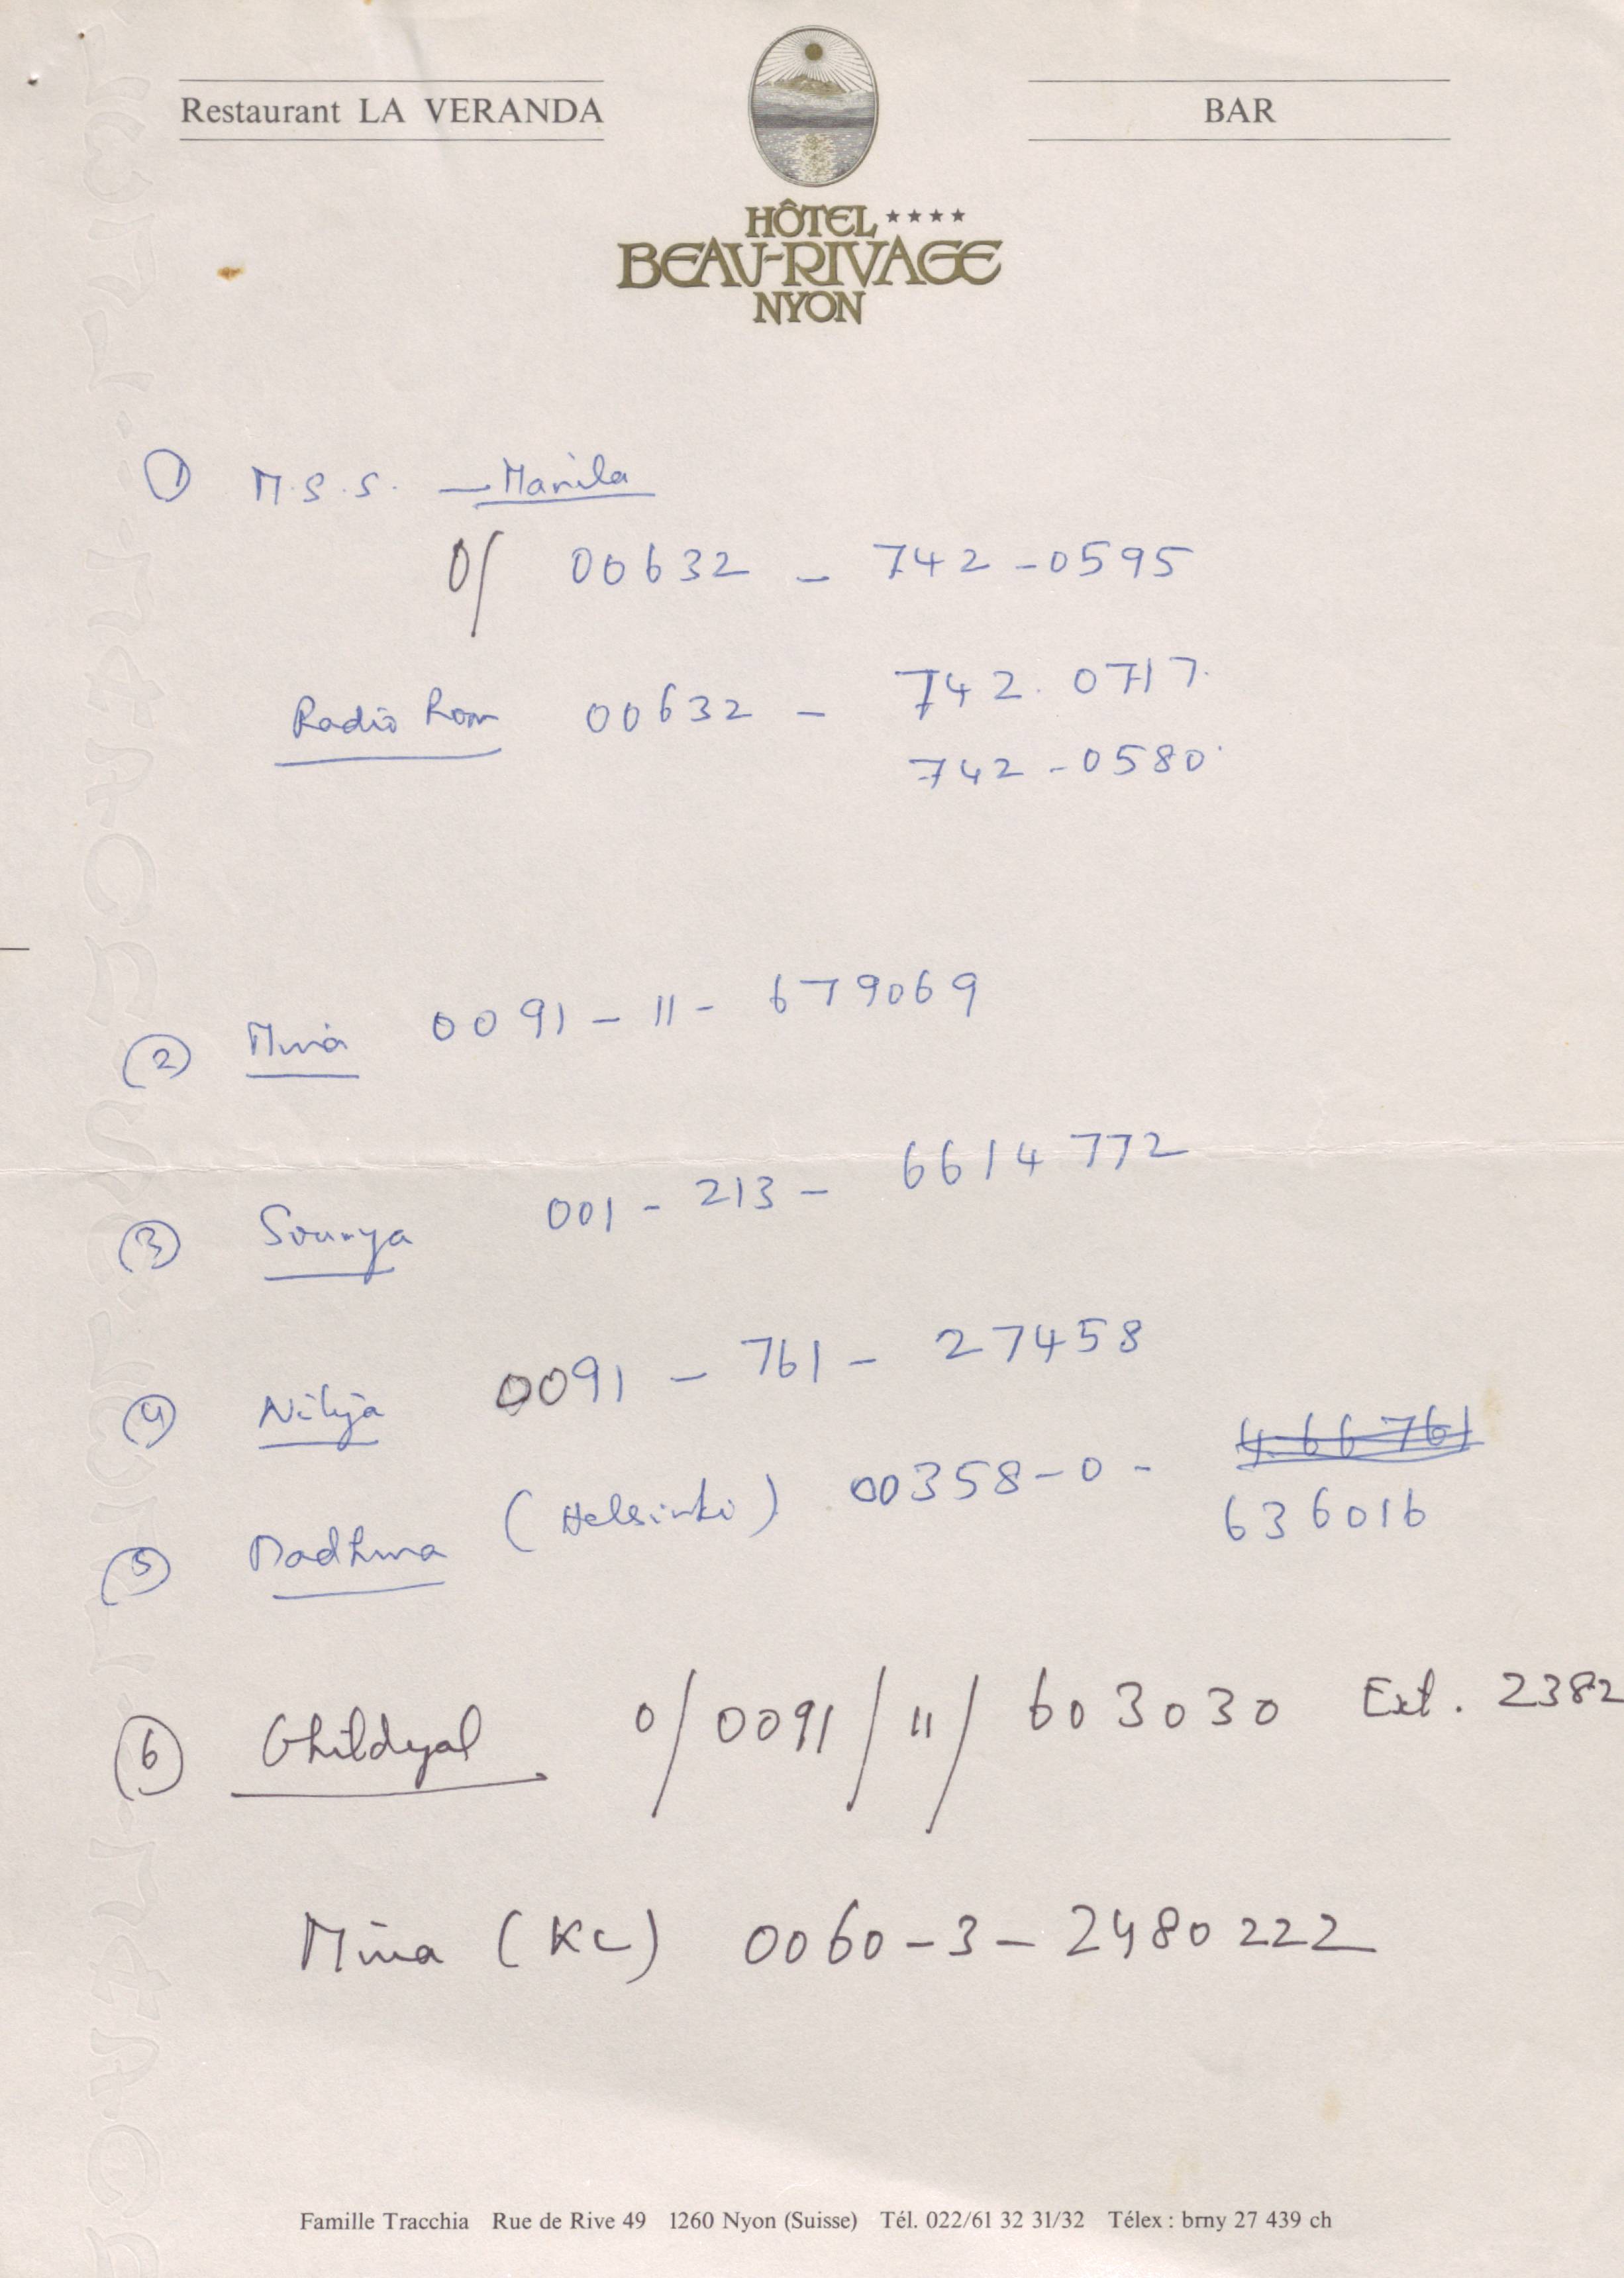 Restaurant LA VERANDA
BAR
HÔTEL ★★★★
BEAU-RIVAGE
NYON
① M.S.S. — Manila
0/ 00632 - 742-0595
Radio Room 00632 - 742.0717
742-0580
② Mina 0091-11-679069
③ Soumya 001-213-6614772
④ 0091-761-27458
⑤ Madhura (Helsinki) 00358-0- 466761
636016
⑥ Ghildyal 0/0091/11/603030 Ext. 2382
Mina (KL) 0060-3-2480222
Famille Tracchia Rue de Rive 49 1260 Nyon (Suisse) Tél. 022/61 32 31/32 Télex : brny 27 439 ch